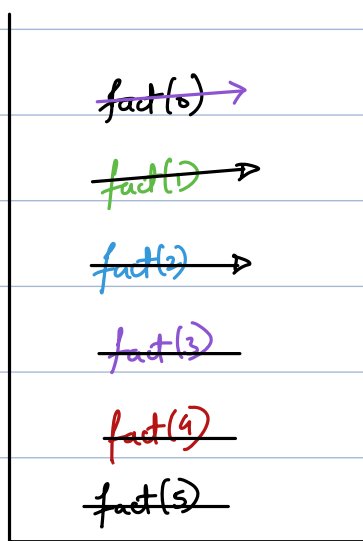 fact(0)
fact(1)
fact(2)
fact(3)
fact(4)
fact(5)